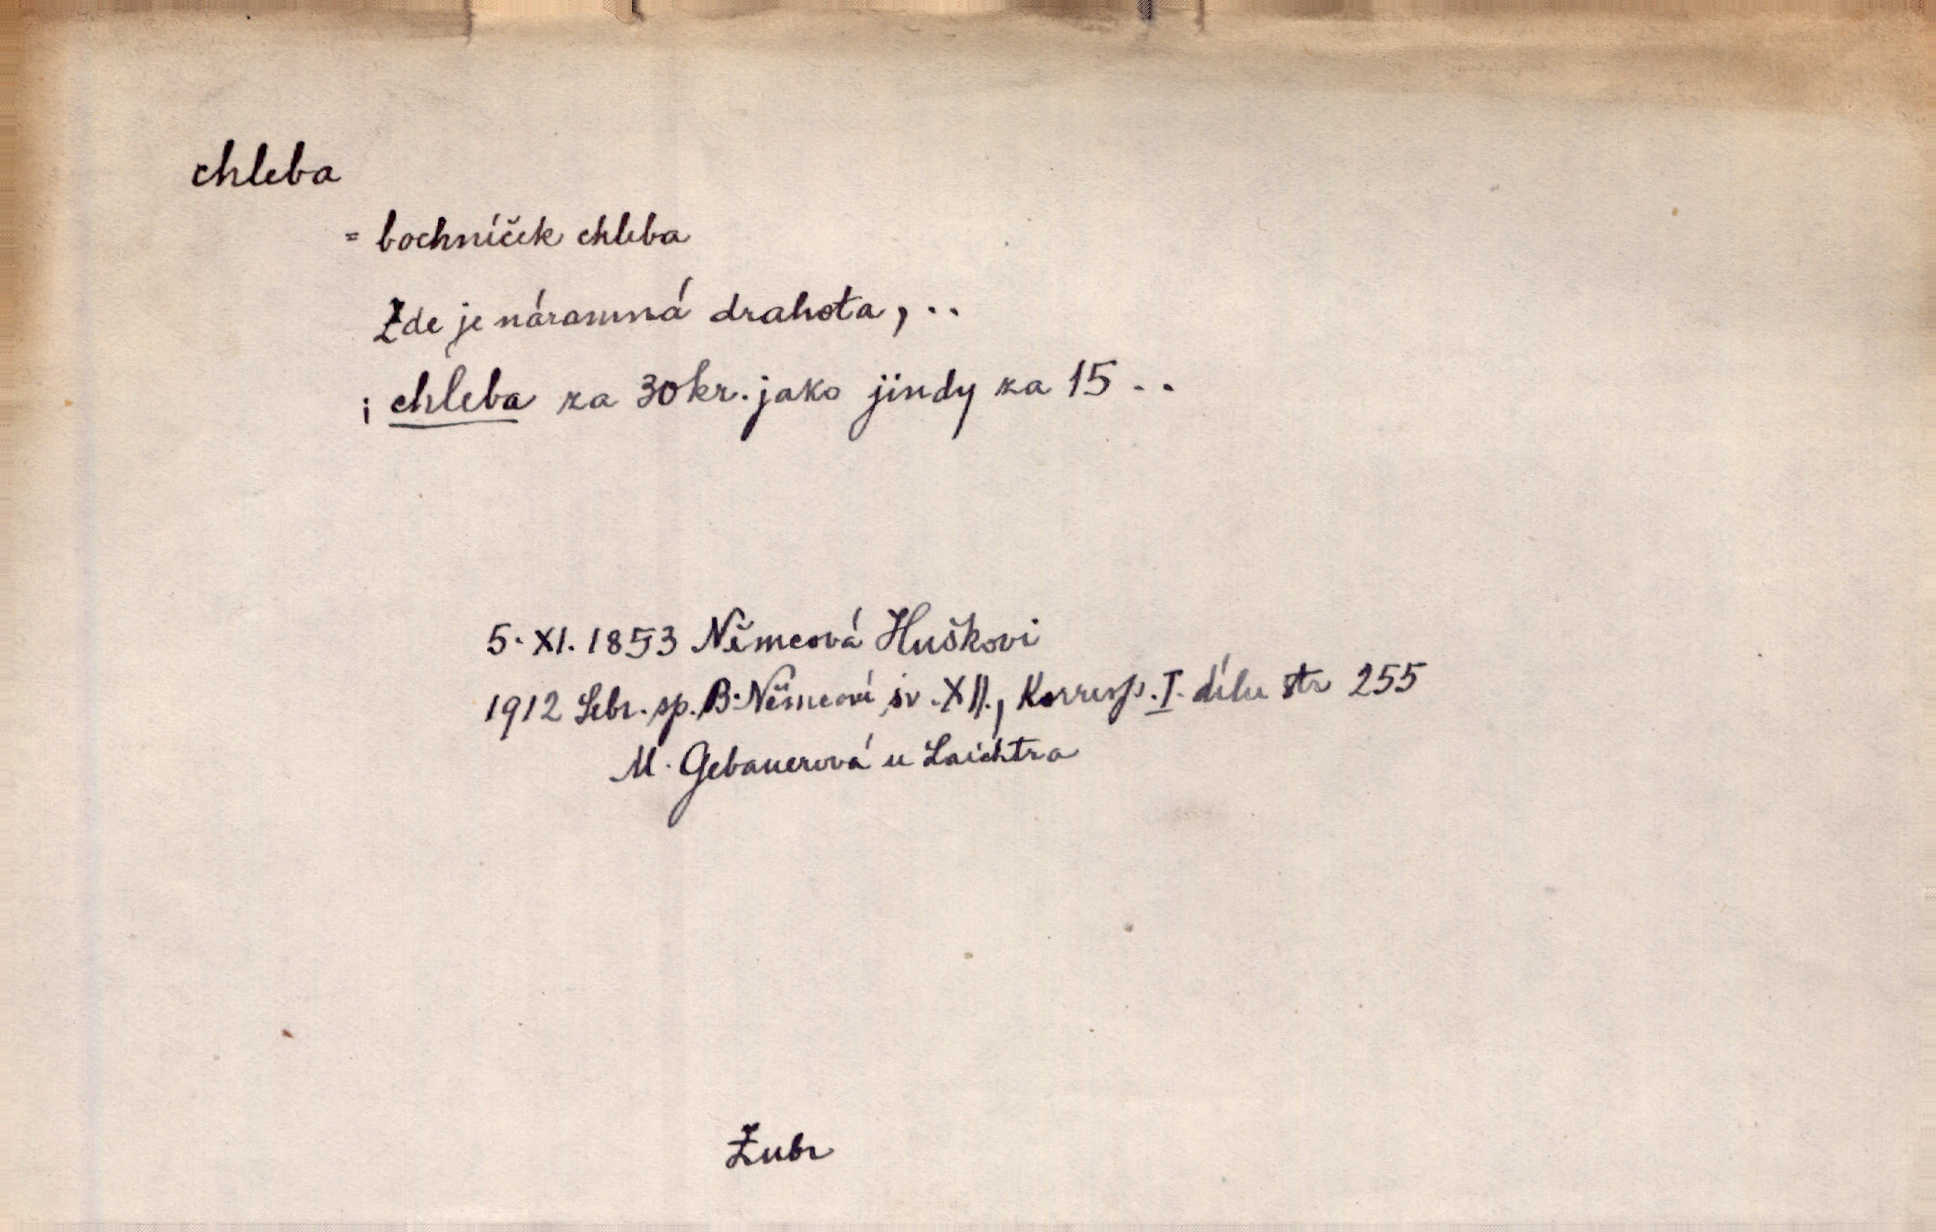 chleba
= bochníček chleba
Zde je náramná drahota, ..
i chleba za 30 kr. jako jindy za 15 ..
5. XI. 1853 Němcová Huškovi
1912 Sebr. sp. B. Němcové sv. XII., Korresp. I. dílu str 255
M. Gebauerová u Laichtra
Zubr